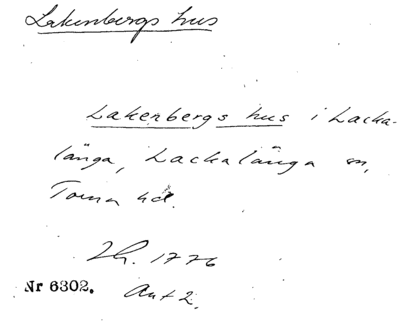 Lakenbergs hus
Lakenbergs hus i Lacka-
länga, Lackalänga sn,
Torna hd.
Lh. 1776
Nr 6302. Ant 2.